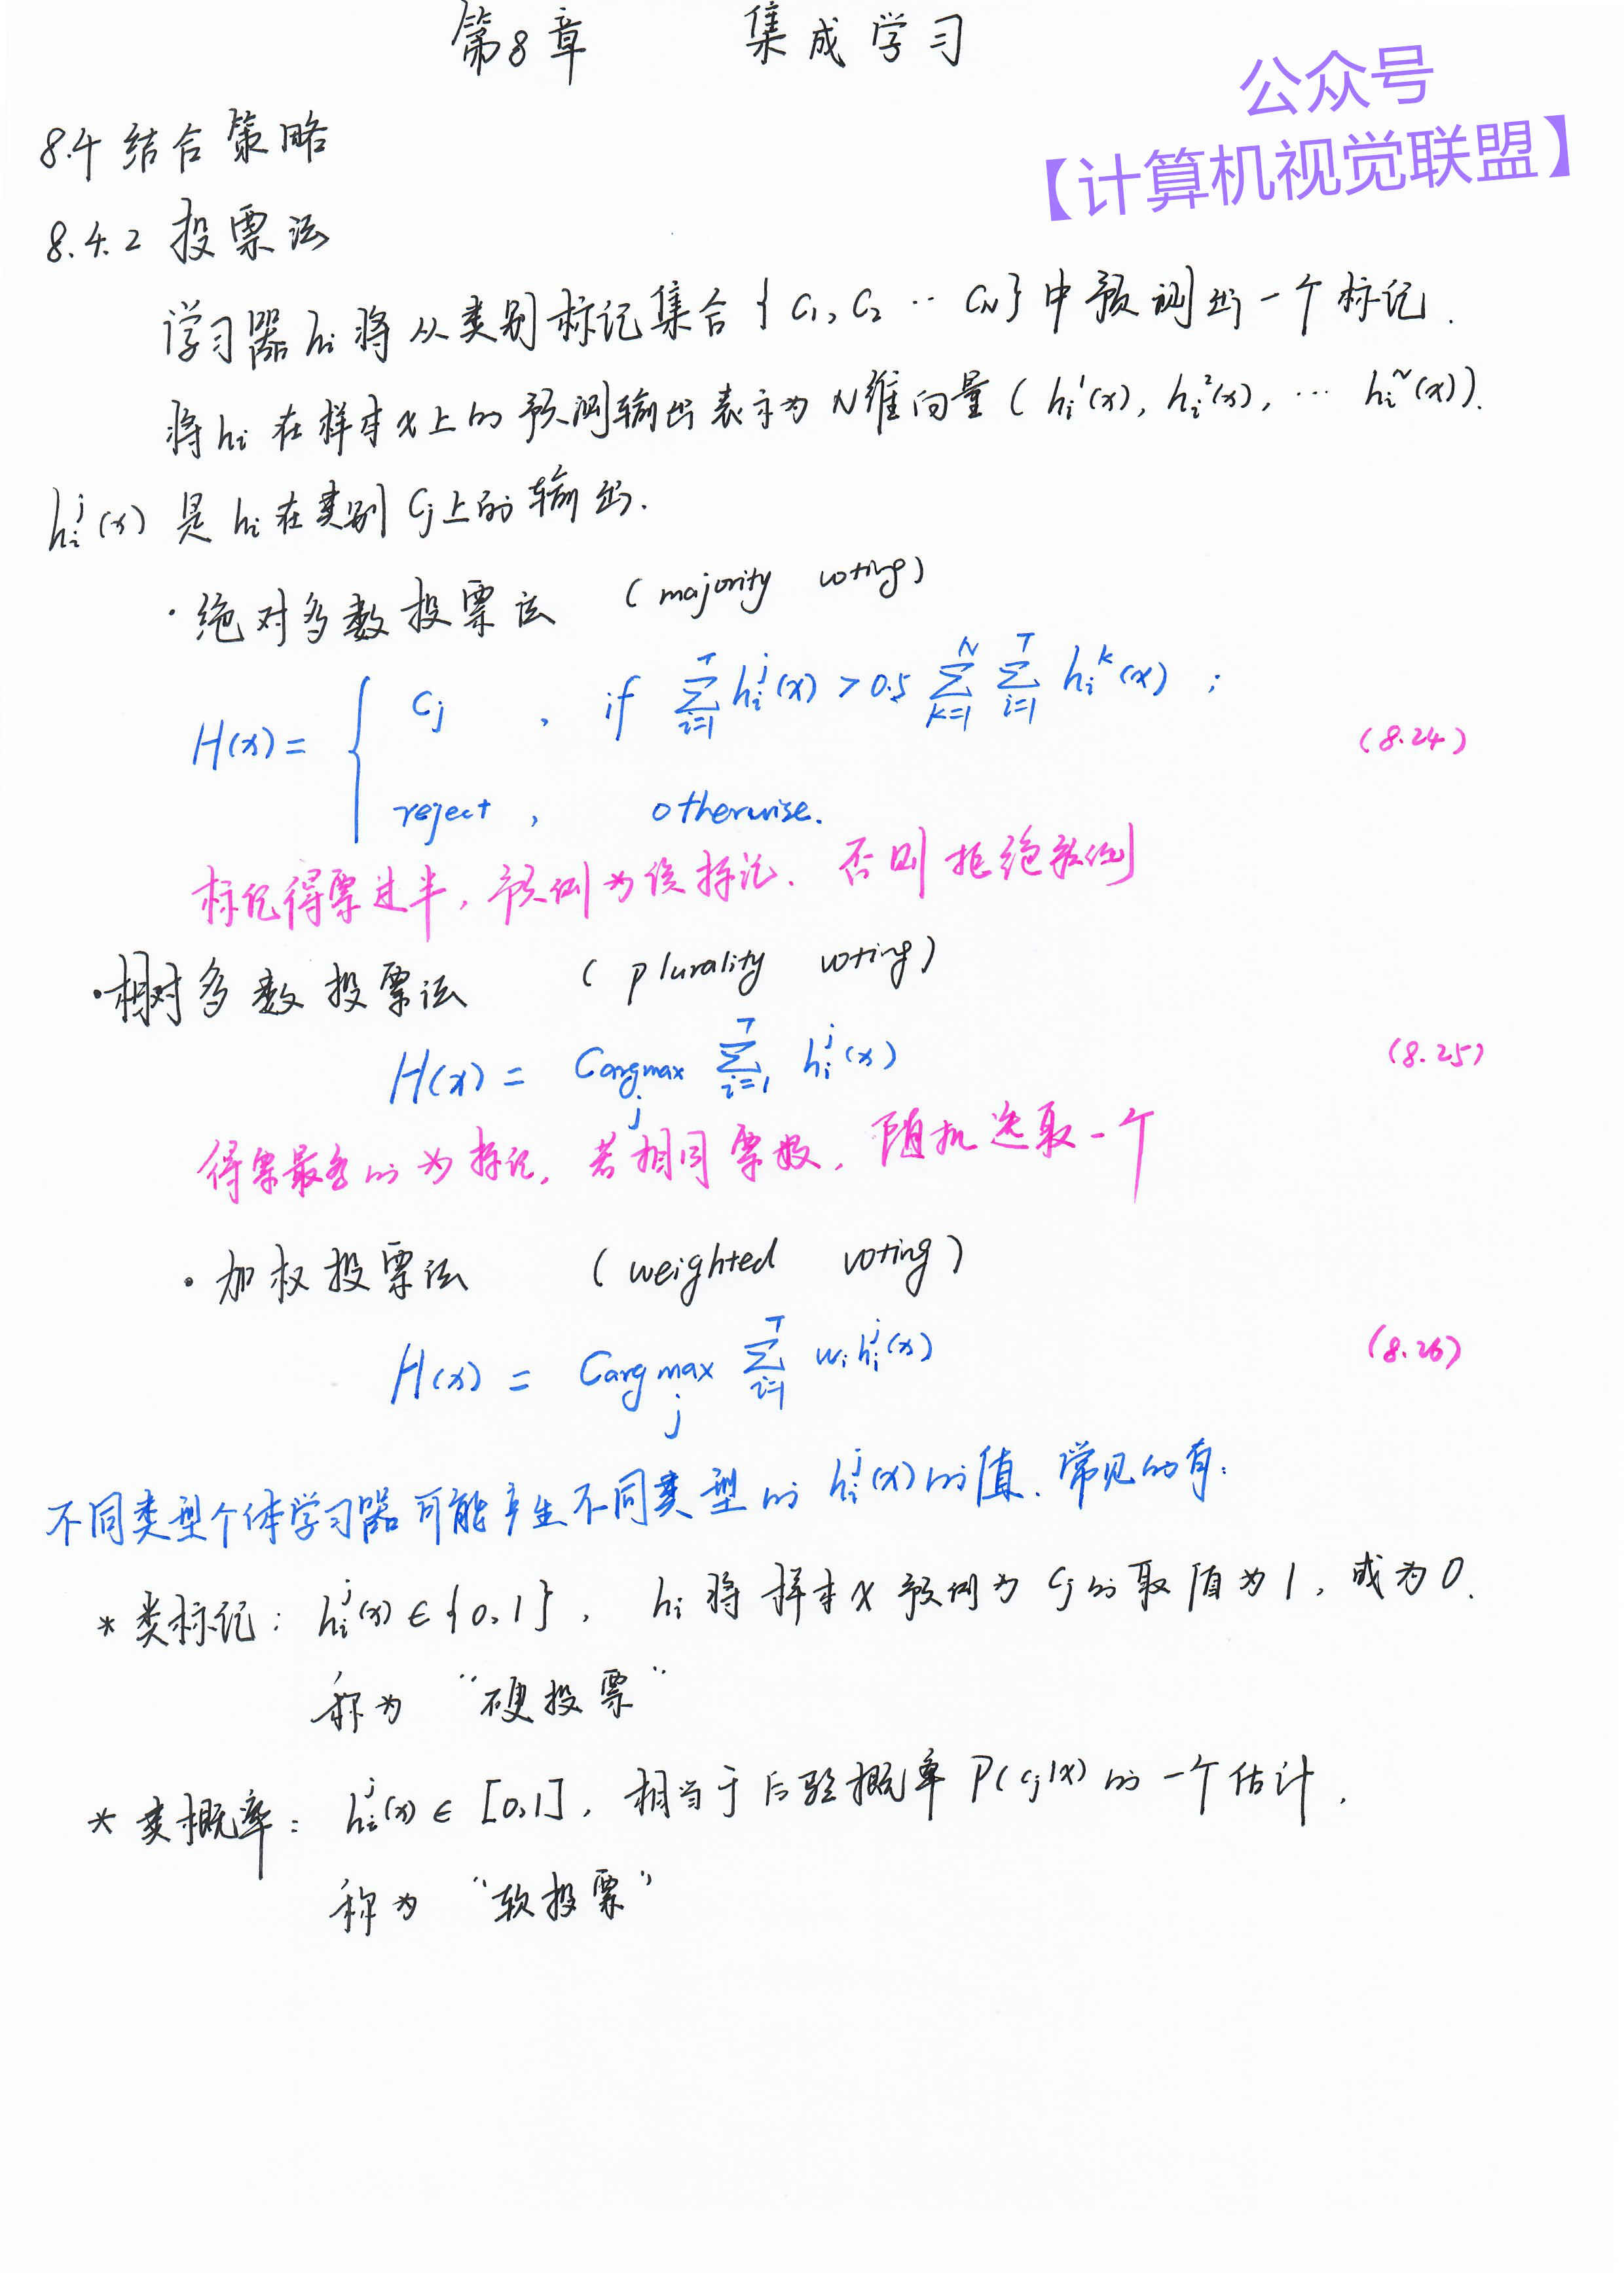 第8章 集成学习
公众号
【计算机视觉联盟】
8.4 结合策略
8.4.2 投票法
学习器 hi 将从类别标记集合 {c1, c2 ·· cN} 中预测出一个标记.
将 hi 在样本 x 上的预测输出表示为 N维向量 ( hi^1(x), hi^2(x), ··· hi^N(x) ).
hi^j(x) 是 hi 在类别 cj 上的输出.
· 绝对多数投票法 ( majority voting )
H(x) = { cj , if ∑_{i=1}^{T} hi^j(x) > 0.5 ∑_{k=1}^{N} ∑_{i=1}^{T} hi^k(x) ;
(8.24)
reject , otherwise.
标记得票过半, 预测为该标记. 否则拒绝预测
· 相对多数投票法 ( plurality voting )
H(x) = C_{argmax_j} ∑_{i=1}^{T} hi^j(x) (8.25)
得票最多的为标记, 若相同票数, 随机选取一个
· 加权投票法 ( weighted voting )
H(x) = C_{argmax_j} ∑_{i=1}^{T} wi hi^j(x) (8.26)
不同类型个体学习器可能产生不同类型的 hi^j(x) 的值. 常见的有:
* 类标记: hi^j(x) ∈ {0,1}, hi 将样本 x 预测为 cj 的取值为 1, 或为 0.
称为 “硬投票”
* 类概率: hi^j(x) ∈ [0,1], 相当于后验概率 P(cj|x) 的一个估计.
称为 “软投票”